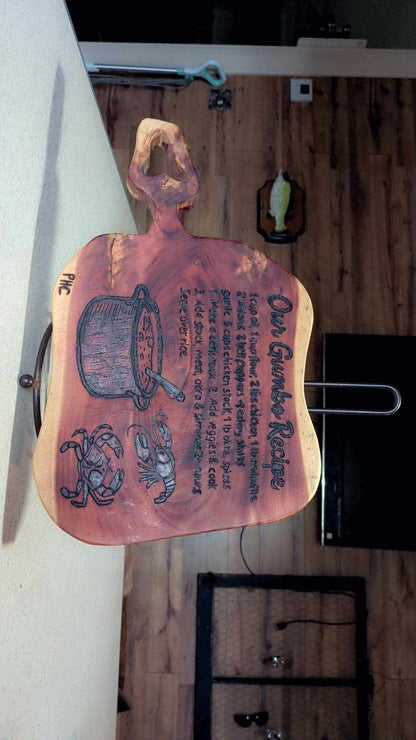 Our Gumbo Recipe
1 cup oil, 1 cup flour, 2 lbs chicken, 1 lb
2 onions, 2 bell peppers, 4 celery stalks
garlic, 6 cups chicken stock, 1 lb okra, spices
1. Make a dark roux. 2. Add veggies & cook
3. Add stock, meat, okra & simmer 2 hours
Serve over rice
PHC